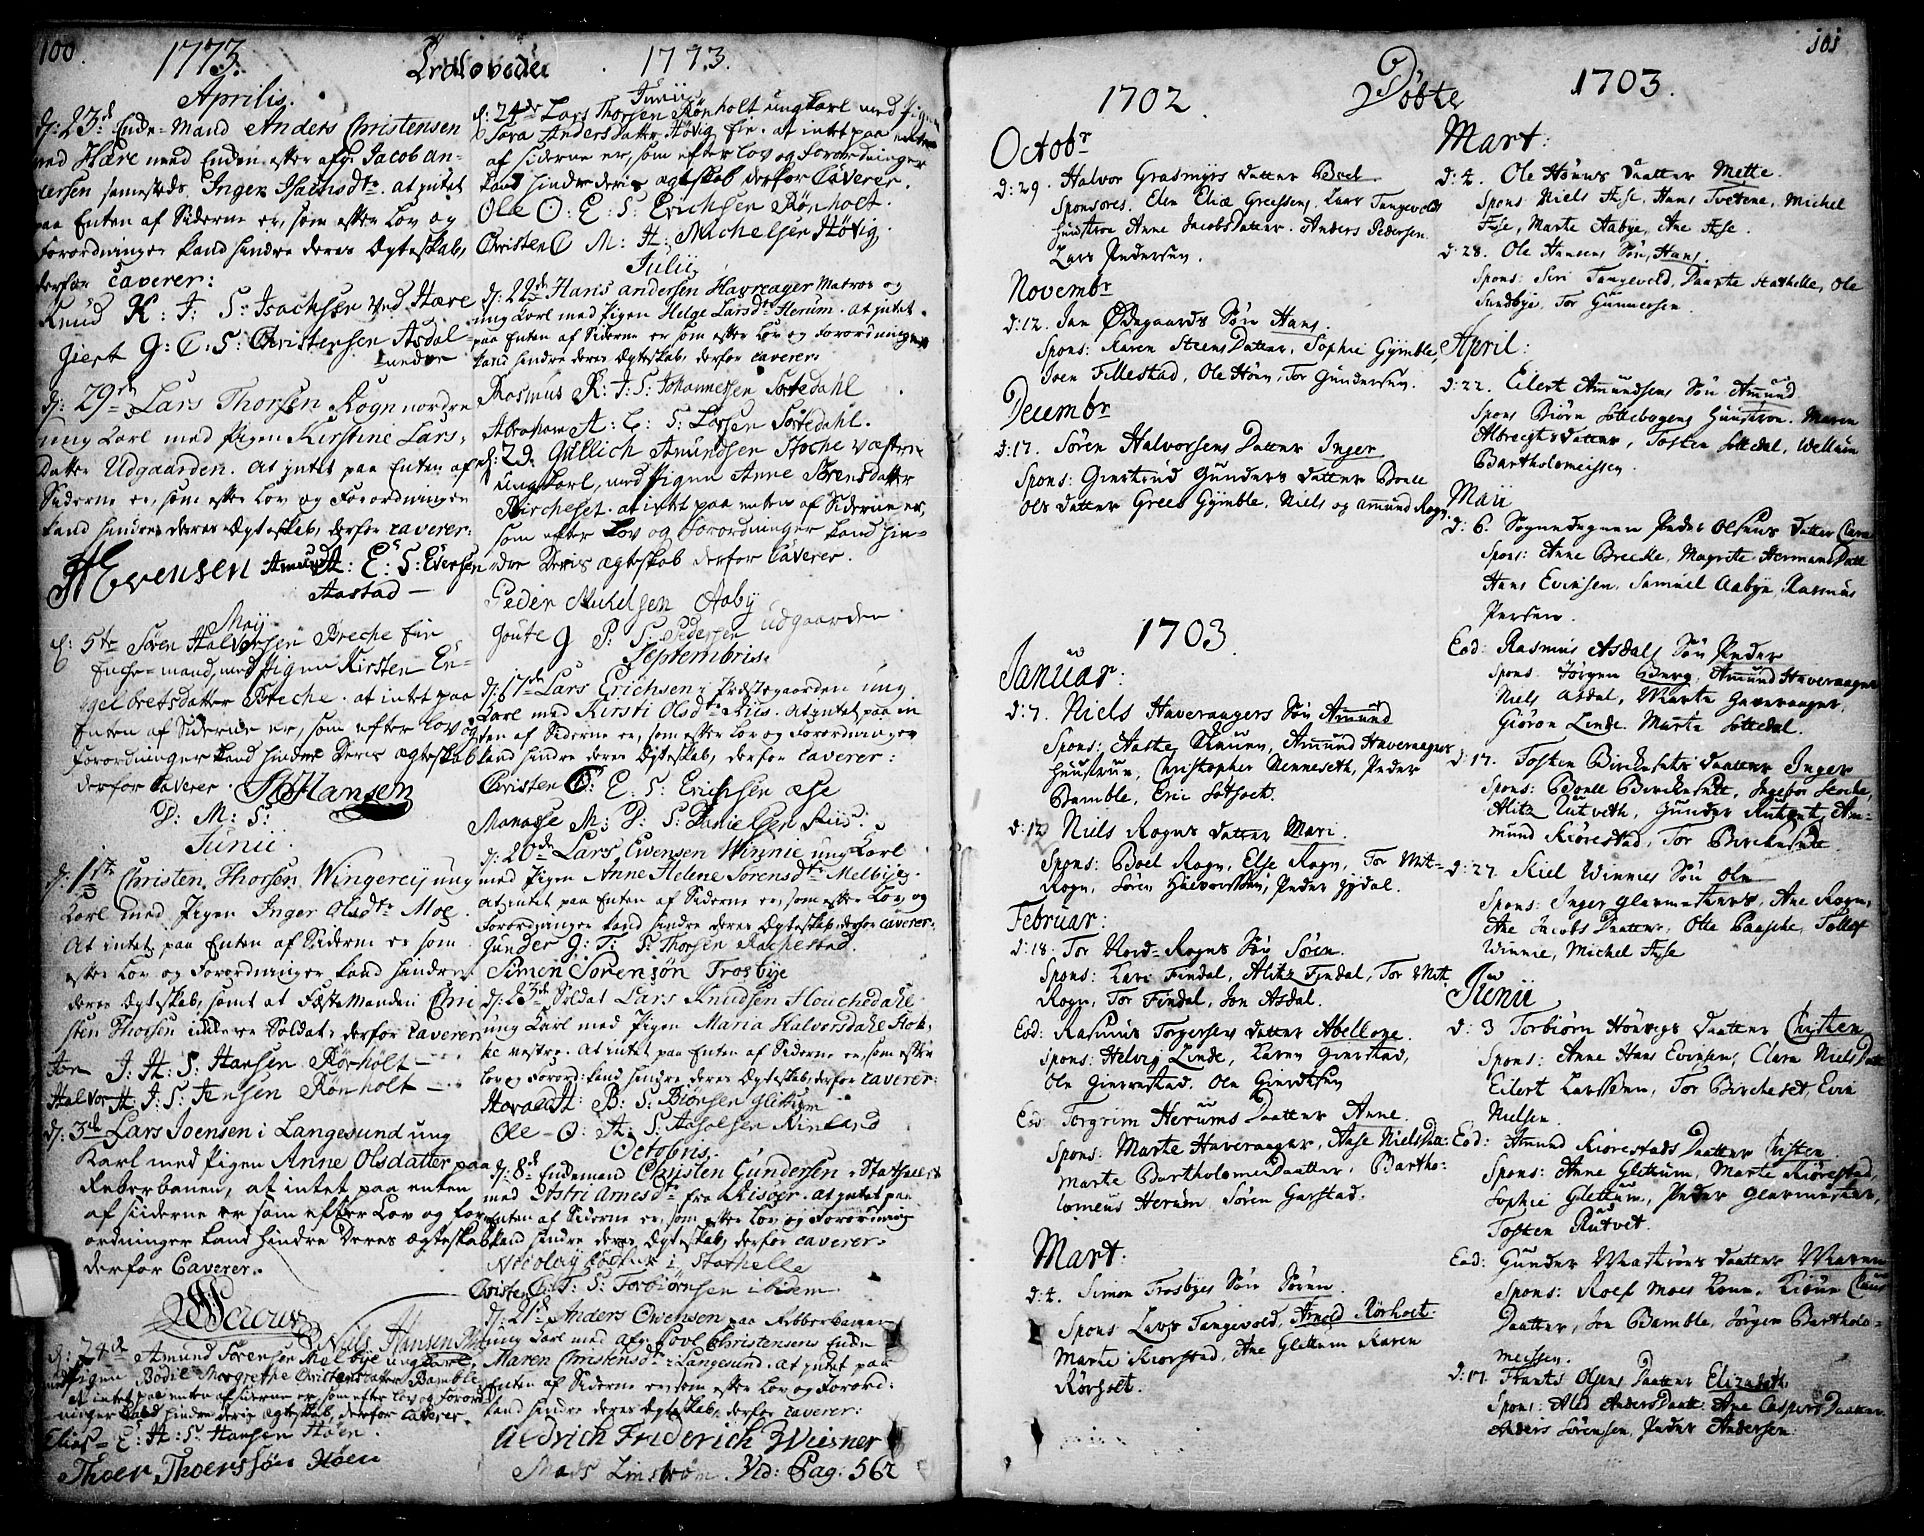 100.
1773.
Trolovede
1773.
Aprilis.
d: 23d Enke-Mand Anders Christensen
ved Hære med Enken efter afg: Jacob An-
dersen sammesteds Inger Isachsdtr. at intet
paa Enten af Siderne er, som efter Lov og
Forordninger kand hindre deres Ægteskab,
derfor Caverer:
Knud K: I: S: Isachsen ved Hære
Giert G: C: S: Christensen Asdal
søndre
d: 29de Lars Thorsen Rogn nordre
ung Karl med Pigen Kirstine Lars-
Datter Udgaarden. at intet paa Enten af
Siderne er, som efter Lov og Forordninger
kand hindre deres Ægteskab, derfor Caverer:
H Evensen Amund A: E: S: Evensen
Aastad —
Maij
d: 5te Søren Halvorsen Breche En
Enke-mand, med Pigen Kirsten En-
gelbretsdatter Breche. at intet paa
Enten af Siderne er, som efter Lov og
Forordninger kand hindre Deris ægteskab
derfor Caverer. Hansen
D: M: S:
Junii.
d: 1ste Christen Thorsen Wingereij ung
Karl med Pigen Inger Olsdtr Moe.
At intet paa Enten af Siderne er som
efter Lov og Forordninger kand hindre
deres Ægteskab, samt at Fæstemanden Chri-
sten Thorsen ikke er Soldat, derfor Caverer
Jon J: H: S: Hansen Rørholt —
Halvor H: J: S: Jensen Rønholt —
d: 3de Lars Joensen i Langesund ung
Karl med Pigen Anne Olsdatter paa
Reberbanen, at intet paa enten
af siiderne er som efter Lov og for-
ordninger kand hindre Deres ægteskab
derfor Caverer.
Niels Hansen
d: 24de Amund Sørensen Melbye ung Karl,
med Pigen Bodil Margrethe Christensdatter Bamble
at intet paa enten af siderne er som efter lov og Forord-
ninger kand hindre deris ægteskab, derfor Caverer.
Elias E: H: S: Hansen Høen.
Thoer Thoerssøn Høen
Junii
d: 24de Lars Thorsen Rønholt ung Karl med Pigen
Sara Andersdatter Høvig Eie. at intet paa enten
af Siderne er, som efter Lov og Forordninger
kand hindre deris ægteskab, derfor Caverer.
Ole O: E: S: Erichsen Rønholt.
Christen C M: H: Michelsen Høvig
Julii,
d: 22de Hans Andersen Havreager Matros og
ung Karl med Pigen Helge Larsdtr Herum. at intet
paa Enten af Siderne er som efter Lov og Forordninger
kand hindre deres Ægteskab, derfor Caverer.
Rasmus R: I: S: Johannessen Sotedahl
Abraham A: L: S: Larsen Sotedahl.
d: 29. Gullich Amundsen Stoche Vestre
ung Karl, med Pigen Anne SørensDatter
Bircheset. at intet paa enten af Siderne er,
som efter Lov og Forordninger kand hin-
dre Deris ægteskab derfor Caverer.
Peder Michelsen Aaby
Goute G P: S: Pedersen Udgaarden
Septembris.
d: 17de Lars Erichsen i Præstegaarden ung
Karl med Kirsti Olsdtr Riis. At intet paa en
ten af Siderne er, som efter Lov og Forordninger
kand hindre deres Ægteskab, derfor Caverer:
Christen C: E: S: Erichsen Ose
Manasse M: D: S: Danielsen Riis.
d: 20de Lars Evensen Winnie ung Karl
med Pigen Anne Helene Sørensdtr Melbye.
At intet paa Enten af Siderne er, som efter Lov og
Forordninger kand hindre deres Ægteskab, derfor Caverer.
Gunder G: T: S: Thorsen Rachestad.
Simen Sørensøn Trosbye
d: 23de Soldat Lars Knudsen Houchedahl
ung Karl med Pigen Maria Halvorsdatter Stok-
ke vestre. At intet paa Enten af Siderne er, som efter
Lov og Forord: kand hindre deres Ægteskab, derfor Caverer:
B: S: Biønsen Glittum
Ole O: A: S: Kinland
Octobris.
d: 8de Enkemand Christen Gundersen i Stathelle
med Astri Arnesdtr fra Risøer. At intet paa
Enten af Siderne er, som efter Lov og Forordning
kand hindre deres Ægteskab, derfor Caverer.
Nicolay i Stathelle
Christen C: T: S: Torbiørnsen ibidem
d: 21de Anders Evensen paa Rebberbanen
ung Karl med afg: Povl Christensens Enke
Maren Christensdtr i Langesund. at intet paa
Enten af Siderne er, som efter Lov og Forord:
kand hindre deres Ægteskab, derfor Caverer:
Aldrich Friderich Wiesner
Mads Linstrøm. Vid: Pag: 562
101
1702.
Døbte
1703.
Octobr
d: 29. Halvor Grasmyrs datter Boel.
Sponsores, Elen Eliæ Greessens, Lars Tangevolds
hustroe Anne JacobsDatter. Anders Pedersen.
Lars Pedersen.
Novembr
d: 12. Jan Ødegaards Søn Hans.
Spons: Karen SteensDatter, Sophie Gymble,
Iven Fillestad, Ole Høen, Tor Gundersen.
Decembr
d: 17. Søren Halvorsens Datter Inger
Spons: Giertrud Gunders datter Boell
Ols datter Grees Gymble, Niels og Amund Rogn.
1703.
Januar:
d: 7. Niels Haveraagers Søn Amund
Spons: Aaste Skuen, Amund Haveraagers
Hustrue, Christopher Nenneseth, Peder
Bamble, Eric
d: 12 Niels Rogns datter Mari.
Spons: Boel Rogn, Else Rogn, Tor Mit-
Rogn, Søren Halvorssen, Peder Gydal.
Februar:
d: 18. Tor Nord-Rogns Søn Søren.
Spons: Kari Findal, Alitz Findal, Tor Mit
Rogn, Tor Findal, Jon Asdal.
Eod: Rasmus Torgersens datter Abelloge.
Spons: Helvig Linde, Karen Gierstad,
Ole Gierrestad. Ole
Eod: Torgrim Herums Daatter Anne.
Spons: Marte Haveraager, Aase NielsDat:
Marte BartholomeiDaatter, Bartho:
lomeus Herum, Søren Garstad.
Mart:
d: 4. Simon Trosbyes Søn Søren.
Spons Lars Tangevold, Arnold Rørholt.
Marte Kiorstad, Ane Glettum Karen
Rørholt.
Mart:
d: 4. Ole Hönes daatter Mette.
Spons Niels Aase, Hans Tvetene, Michel
Aase, Marte Aabye, Ane Aase.
d: 28. Ole Hansens Søn, Hans.
Spons: Siri Tangevold, Daarte Stathelle, Ole
Sundbye, Tor Gunnersen.
April:
d: 22. Eilert Amundsens Søn Amund
Spons Biørn Sottebogens Hustroe. Maren
Albregtsdatter, Tosten Sottedal, Wellum
Bartholomeissen.
Maii
d: 6. Sognedegnen Peder Olsens datter Clara
Spons: Anne Brecke, Magrete HermansDatt
Hans Evensen, Samuel Aabye, Rasmus
Persen.
Eod: Rasmus Asdals Søn Peder
Spons. Jörgen Berg, Amund Haveraager
Niels Asdal, Marte Haveraager,
Giøron Linde. Marte Sottedal.
d: 17. Tosten Birckesets daatter Inger
Spons: Boell Birckeset, Ingebor Stocke,
Alitz Rutveth, Gunder Rutvet, A-
mund Kiørestad, Tor Birckeset.
d: 27. Kiel Winnies Søn Ole
Spons: Inger Glarmesters, Ane Rogn,
Ane Jacobs Daatter, Olle Baasche, Tollof
Winnie, Michel Aase
Junii
d: 3 Torbiørn Hönvigs daatter Christen
Spons: Anne Hans Evensens, Clara NielsDatt
Eilert Larssen, Tor Bircheset, Even
Nielsen.
Eod: Amund Kiørestads Daatter Kirsten.
Spons: Anne Glettum, Marte Kiörestad,
Sophie Glettum, Peder Glarmester,
Tosten Rutvet.
Eod: Gunder Matrøs daatter Maren
Spons: Roef Moes Kone, Kiöne Claus
Daatter, Jon Bamble, Jörgen Bartholo-
meissen.
d: 17. Frants Olsens Daatter Elizabeth.
Spons: Aled AndersDaatt. Ane CaspersDaatter
Anders Sörensen, Peder Andersen.